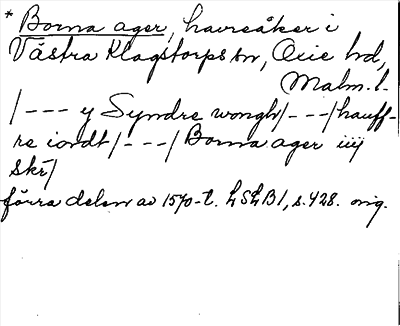 * Borna ager, havreåker i
Västra Klagstorps sn, Oxie hd,
Malm. l.
/--- y Syndre wongh/---/hauff-
re iordt/---/Borna ager iiij
skr/
förra delen av 1570-t. LSLB1, s. 428. orig.